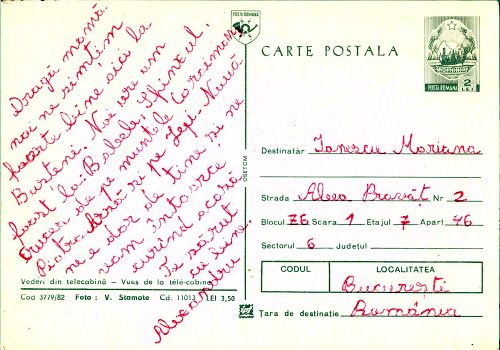 Dragă mamă
noi ne simțim
foarte bine aici la
Bușteni. Noi ieri am
fost la Babele, Sfinxul,
crucea de pe muntele Caraiman,
Piatra Arsă și pe Jepi. Nouă
ne e dor de tine și ne
vom întoarce
curînd acasă
Te sărut
cu bine.
Alexandru
Vederi din telecabină – Vues de la télé-cabine
Cod 3779/82 Foto : V. Stomate Cd. 11013 LEI 3,50
OSETCM
POSTA ROMANA
CARTE POSTALA
POSTA ROMANA 2 LEI
Destinatăr Ionescu Mariana
Strada Aleea Pravăț Nr 2
Blocul Z6 Scara 1 Etajul 7 Apart 46
Sectorul 6 Județul
CODUL LOCALITATEA
București
Țara de destinație România